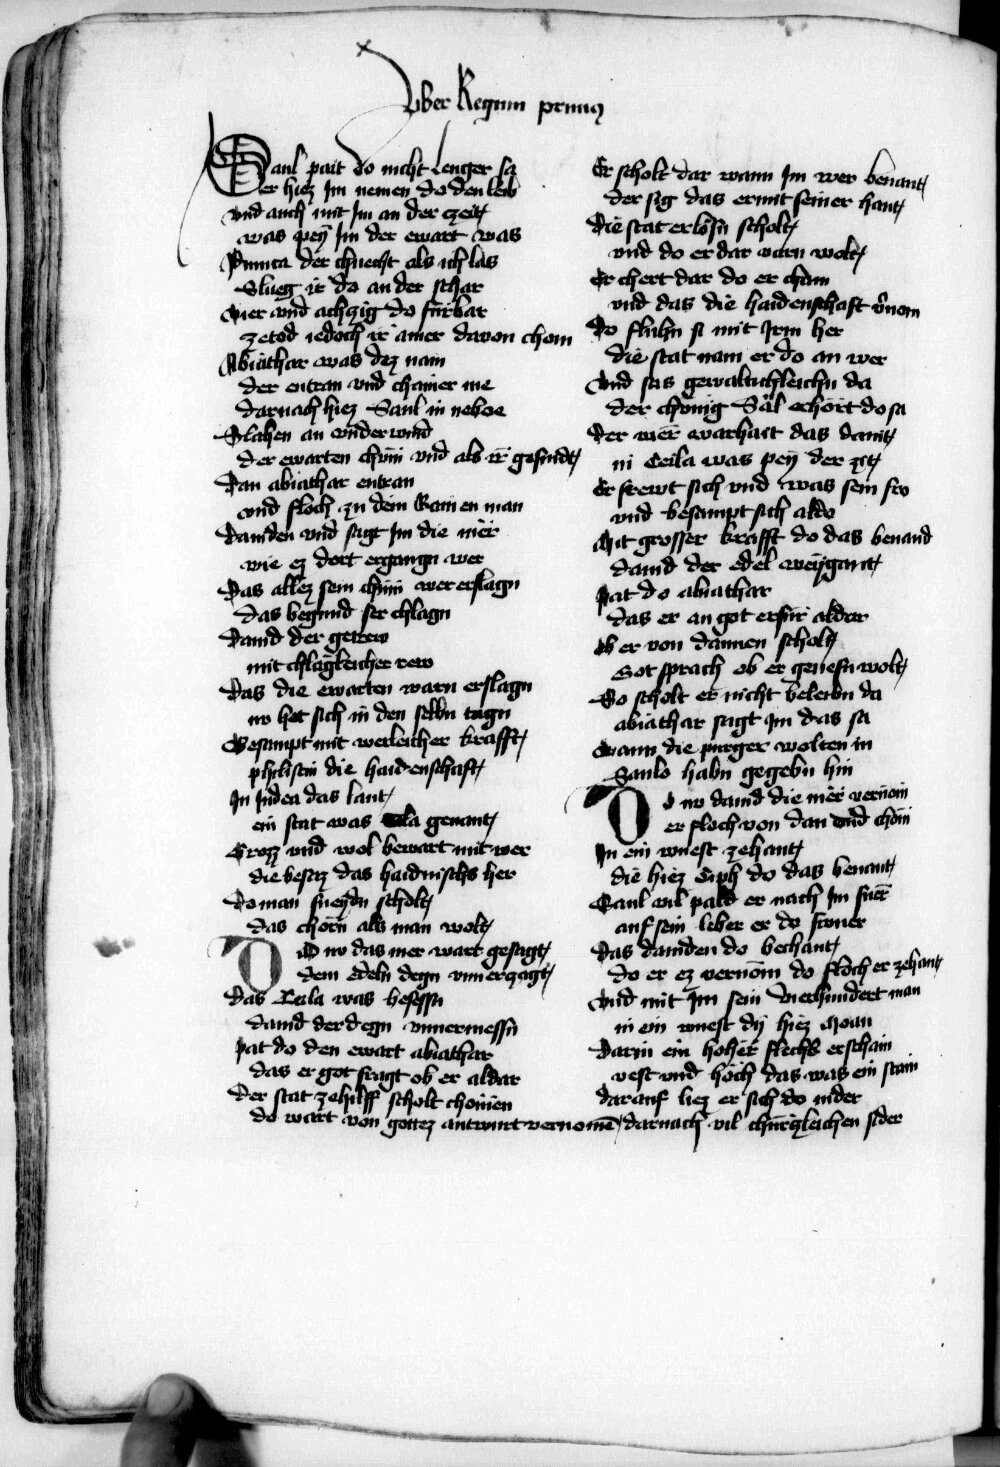 Liber Regum primus
Saul pait do nicht lenger sa
er hiez Im nemen do den leib
vnd auch mit Im an der czeit
was peÿ Im der ewart was
Pnnica der chnecht als ich las
Slueg ir do an der schar
vier vnd achzig do furbar
zetod iedoch ir ainer davon chom
Abiathar was dez nam
der entran vnd chainer me
darnach hiez Saul in noboe
Slahen an vnderwind
der ewarten chün vnd als ir gesindt
Dan abiathar entran
vnd floch zu dem Rainen man
Dauiden vnd sagt Im die mër
wie ez dort ergangn wer
Das allez sein chün wer erslagn
das begund ser chlagn
Dauid der getrew
mit chlagleicher rew
Das die ewarten warn erslagn
nv het sich in den selbn tagn
Gesampt mit werleicher krafft
philistin die haidenschaft
In Judea das lant
ein stat was Ceila genant
Grozz vnd wol bewart mit wer
die besaz das haidnischs her
Do man sneydn scholt
das chorn als man wolt
Do nv das mer wart gesagt
dem edeln degn vnuerzagt
Das Ceila was besessn
dauid der degn vnuermessn
Pat do den ewart abiathar
das er got fragt ob er aldar
Der stat zehilff scholt chomen
do wart von gottez antwurt vernomē
Er scholt dar wann Im wer benant
der sig das er mit seiner hant
Die stat erlosn scholt
vnd do er dar varn wolt
Er chert dar do er cham
vnd das die haidenschaft v̄nom
Do fluhn si mit Irm her
die stat nam er do an wer
Vnd sas gewaltichleichn da
der chvnig Sal erhört do sa
Der mer warhait das dauit
in Ceila was peÿ der zit
Er frewt sich vnd was sein fro
vnd besampt sich aldo
Mit grosser krafft do das benand
dauid der edel weÿgant
Pat do abiathar
das er an got erfür aldar
Ob er von dannen scholt
Got sprach ob er genesn wolt
So scholt er nicht beleibn da
abiathar sagt Im das sa
Wann die purger wolten in
Saulo habn gegebn hin
Do nv dauid die mër vernom
er floch von dan vnd chom
In ein wuest zehant
die hiez Ciph do das benant
Saul vil pald er nach Im fuer
auf sein leber er do swuer
Das dauiden do bechant
do er ez vernom do floch er zehant
Vnd mit Im sein vierhundert man
in ein wuest dy hiez Moan
Darin ein hoher flechs erschain
vest vnd hoch das was ein stain
darauf liez er sich do nider
darnach vil churczleichen sider